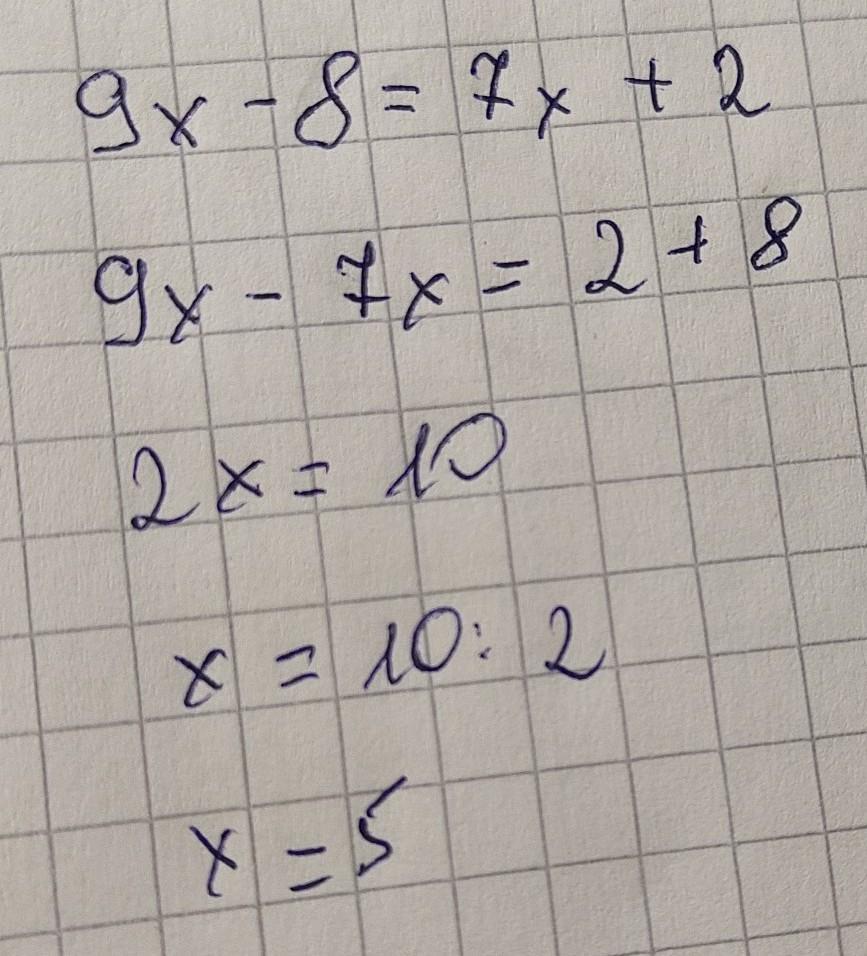 9x - 8 = 7x + 2
9x - 7x = 2 + 8
2x = 10
x = 10 : 2
x = 5